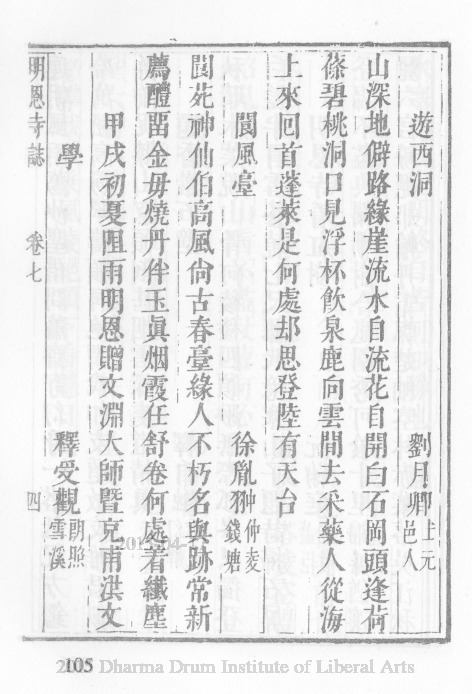 遊西洞　劉月卿上元邑人
山深地僻路緣崖流水自流花自開白石岡頭逢荷
蓧碧桃洞口見浮杯飲泉鹿向雲間去采藥人從海
上來回首蓬萊是何處却思登陸有天台
閬風臺　徐胤翀仲凌錢塘
閬苑神仙伯高風尙古春臺緣人不朽名與跡常新
薦醴留金母燒丹伴玉眞烟霞任舒卷何處着纖塵
甲戌初夏阻雨明恩贈文淵大師暨克甫洪文
學　釋受觀朗照雪溪
明恩寺誌　卷七　四
105 Dharma Drum Institute of Liberal Arts